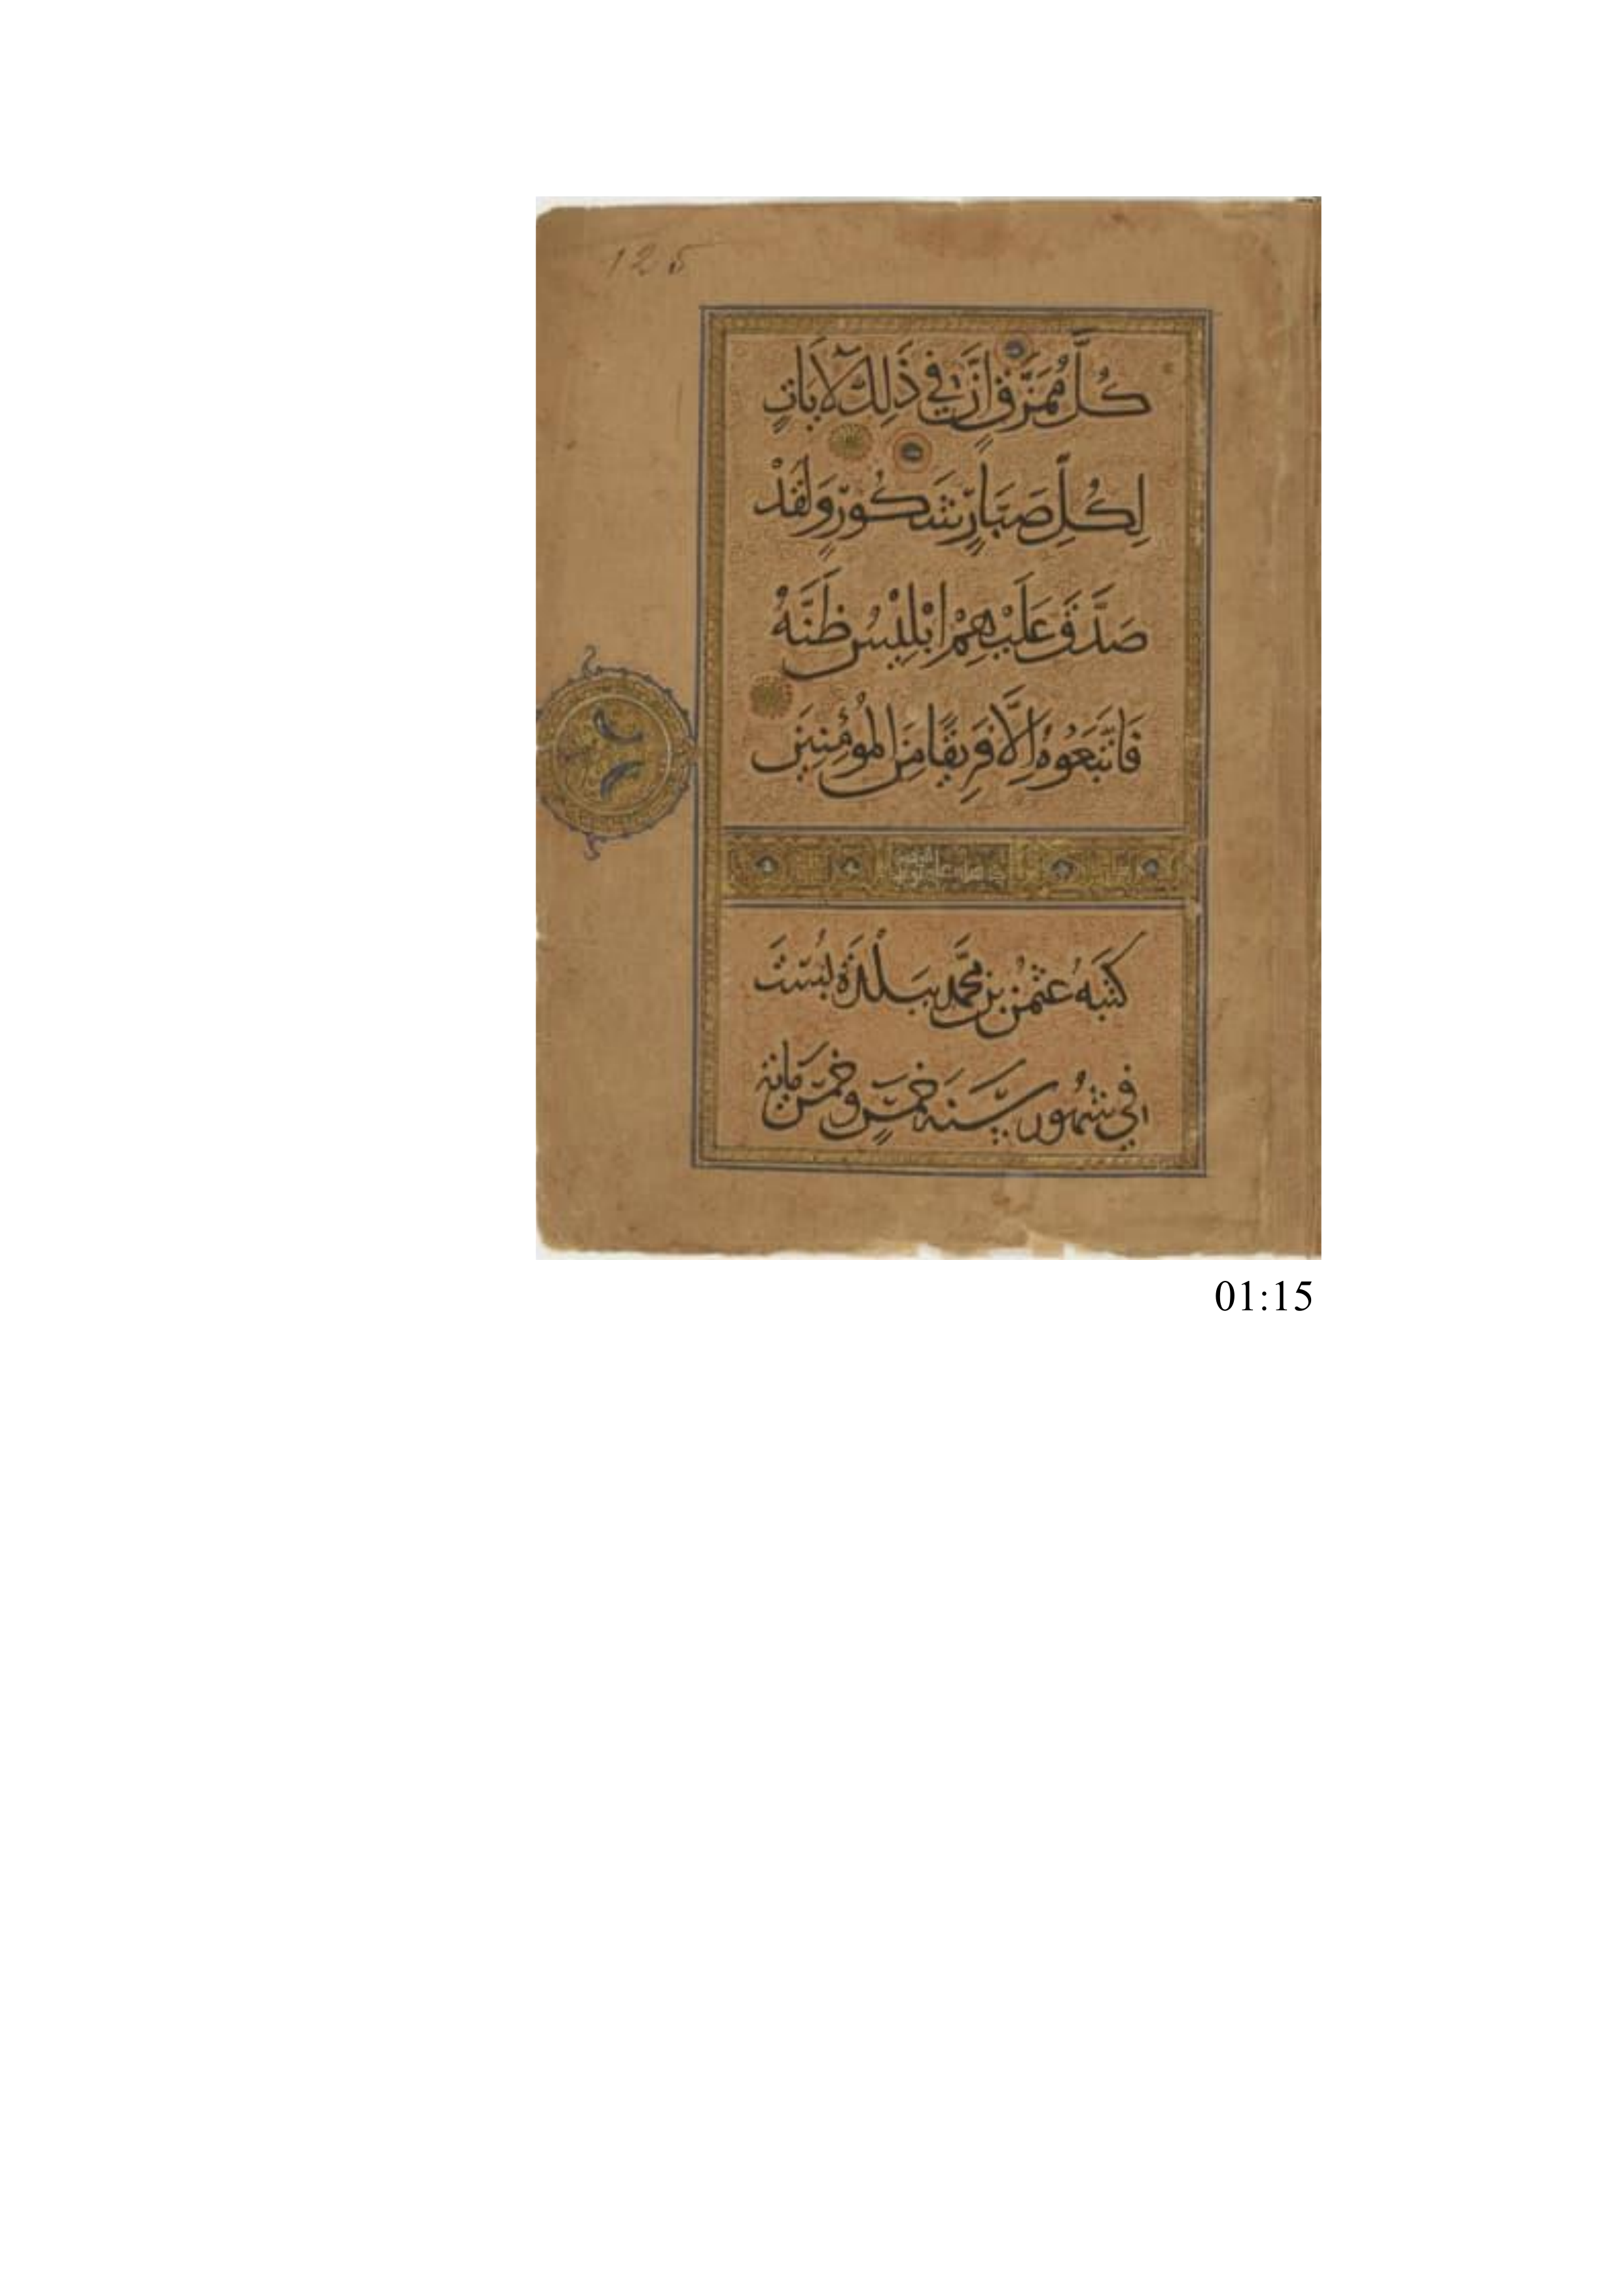 125
كُلَّ مُمَزَّقٍ اِنَّ فِي ذَلِكَ لَآيَاتٍ
لِكُلِّ صَبَّارٍ شَكُورٍ وَلَقَدْ
صَدَّقَ عَلَيْهِمْ اِبْلِيْسُ ظَنَّهُ
فَاتَّبَعُوهُ اِلَّا فَرِيقًا مِنَ الْمُؤْمِنِينَ
كَتَبَهُ عُثمٰن بن مُحَمَّد بِبَلْدَةِ بُسْت
في شُهُورِ سَنَة خَمْسٍ وخمس مائة
01:15